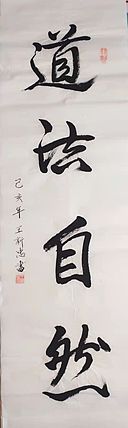 道法自然
己亥年 王新忠书